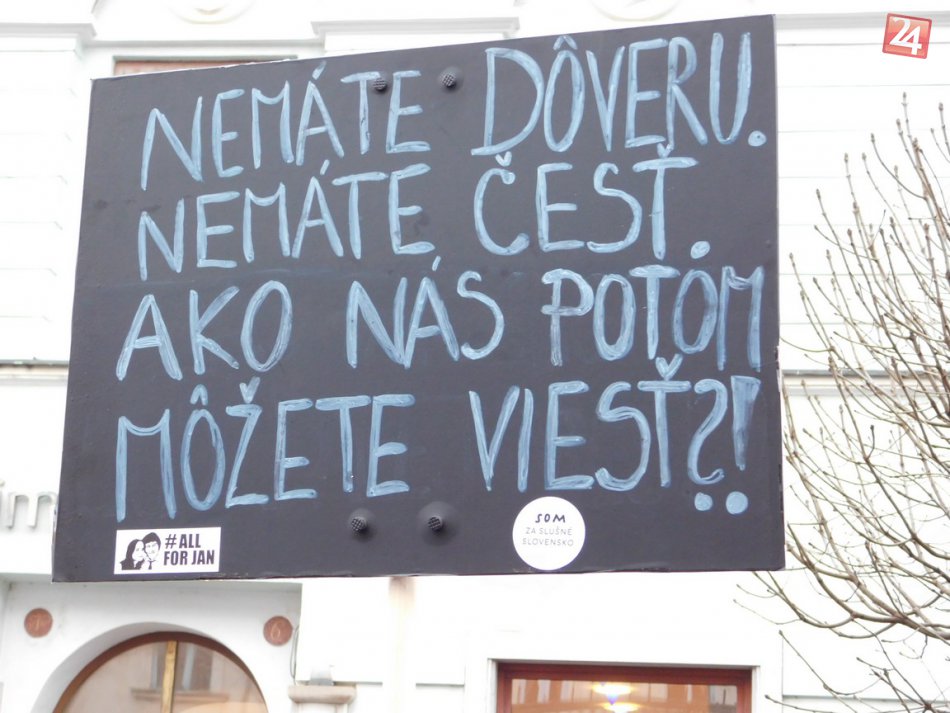 24
NEMÁTE DÔVERU.
NEMÁTE ČESŤ.
AKO NÁS POTOM
MÔŽETE VIESŤ?!
#ALL
FOR JAN
SOM
ZA SLUŠNÉ
SLOVENSKO
6